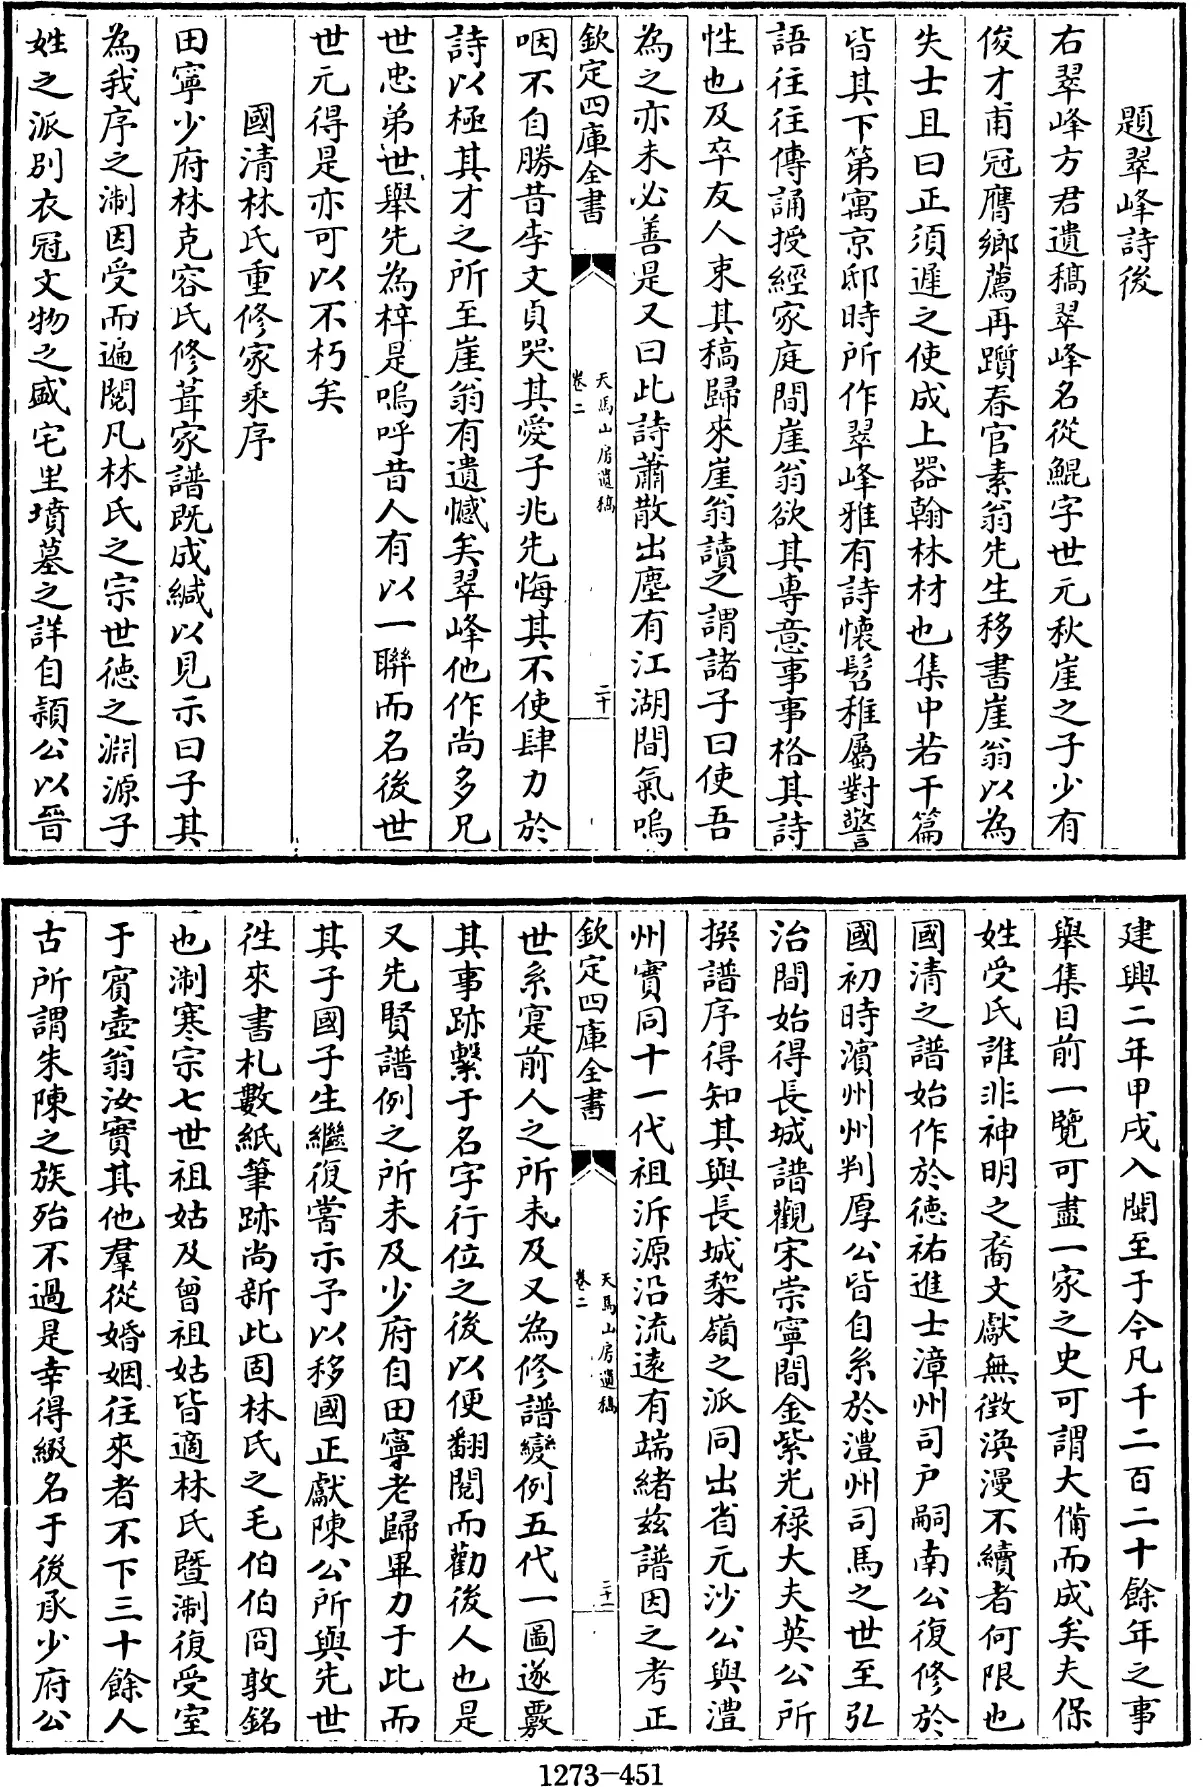 題翠峰詩後
右翠峰方君遺稿翠峰名從鯤字世元秋崖之子少有
俊才甫冠膺鄉薦再躓春官素翁先生移書崖翁以為
失士且曰正須遲之使成上器翰林材也集中若干篇
皆其下第寓京邸時所作翠峰雅有詩懷髫稚屬對警
語往往傳誦授經家庭間崖翁欲其專意事事格其詩
性也及卒友人束其稿歸來崖翁讀之謂諸子曰使吾
為之亦未必善是又曰此詩蕭散出塵有江湖間氣嗚
欽定四庫全書
天馬山房遺稿
卷二
二十
咽不自勝昔李文貞哭其愛子兆先悔其不使肆力於
詩以極其才之所至崖翁有遺憾矣翠峰他作尚多兄
世忠弟世舉先為梓是嗚呼昔人有以一聯而名後世
世元得是亦可以不朽矣
國清林氏重修家乘序
田寧少府林克容氏修葺家譜既成緘以見示曰子其
為我序之淛因受而遍閱凡林氏之宗世德之淵源子
姓之派別衣冠文物之盛宅里墳墓之詳自頴公以晉
建興二年甲戌入閩至于今凡千二百二十餘年之事
舉集目前一覽可盡一家之史可謂大備而成矣夫保
姓受氏誰非神明之裔文獻無徵渙漫不續者何限也
國清之譜始作於德祐進士漳州司戶嗣南公復修於
國初時濱州州判厚公皆自系於澧州司馬之世至弘
治間始得長城譜觀宋崇寧間金紫光祿大夫英公所
撰譜序得知其與長城棃嶺之派同出省元沙公與澧
州實同十一代祖泝源沿流遠有端緒茲譜因之考正
欽定四庫全書
天馬山房遺稿
卷二
二十一
世系寔前人之所未及又為修譜變例五代一圖遂覈
其事跡繫于名字行位之後以便翻閱而勸後人也是
又先賢譜例之所未及少府自田寧老歸畢力于此而
其子國子生繼復嘗示予以移國正獻陳公所與先世
徃來書札數紙筆跡尚新此固林氏之毛伯伯冏敦銘
也淛寒宗七世祖姑及曾祖姑皆適林氏暨淛復受室
于賓壺翁汝實其他羣從婚姻往來者不下三十餘人
古所謂朱陳之族殆不過是幸得綴名于後承少府公
1273-451